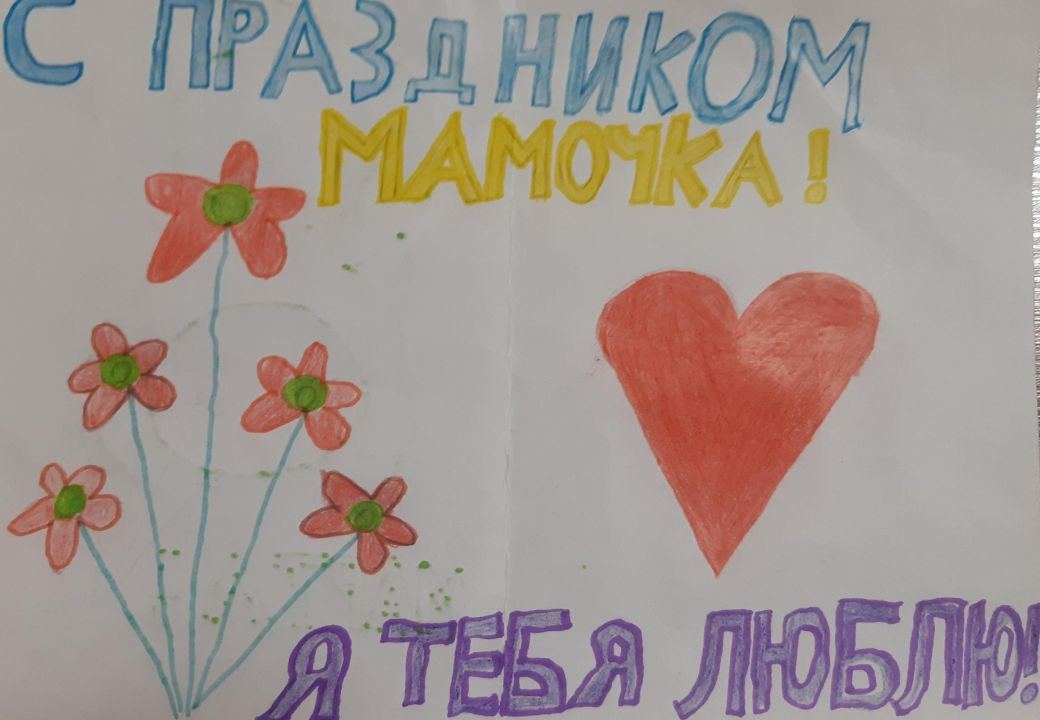 С ПРАЗДНИКОМ
МАМОЧКА!
Я ТЕБЯ ЛЮБЛЮ!